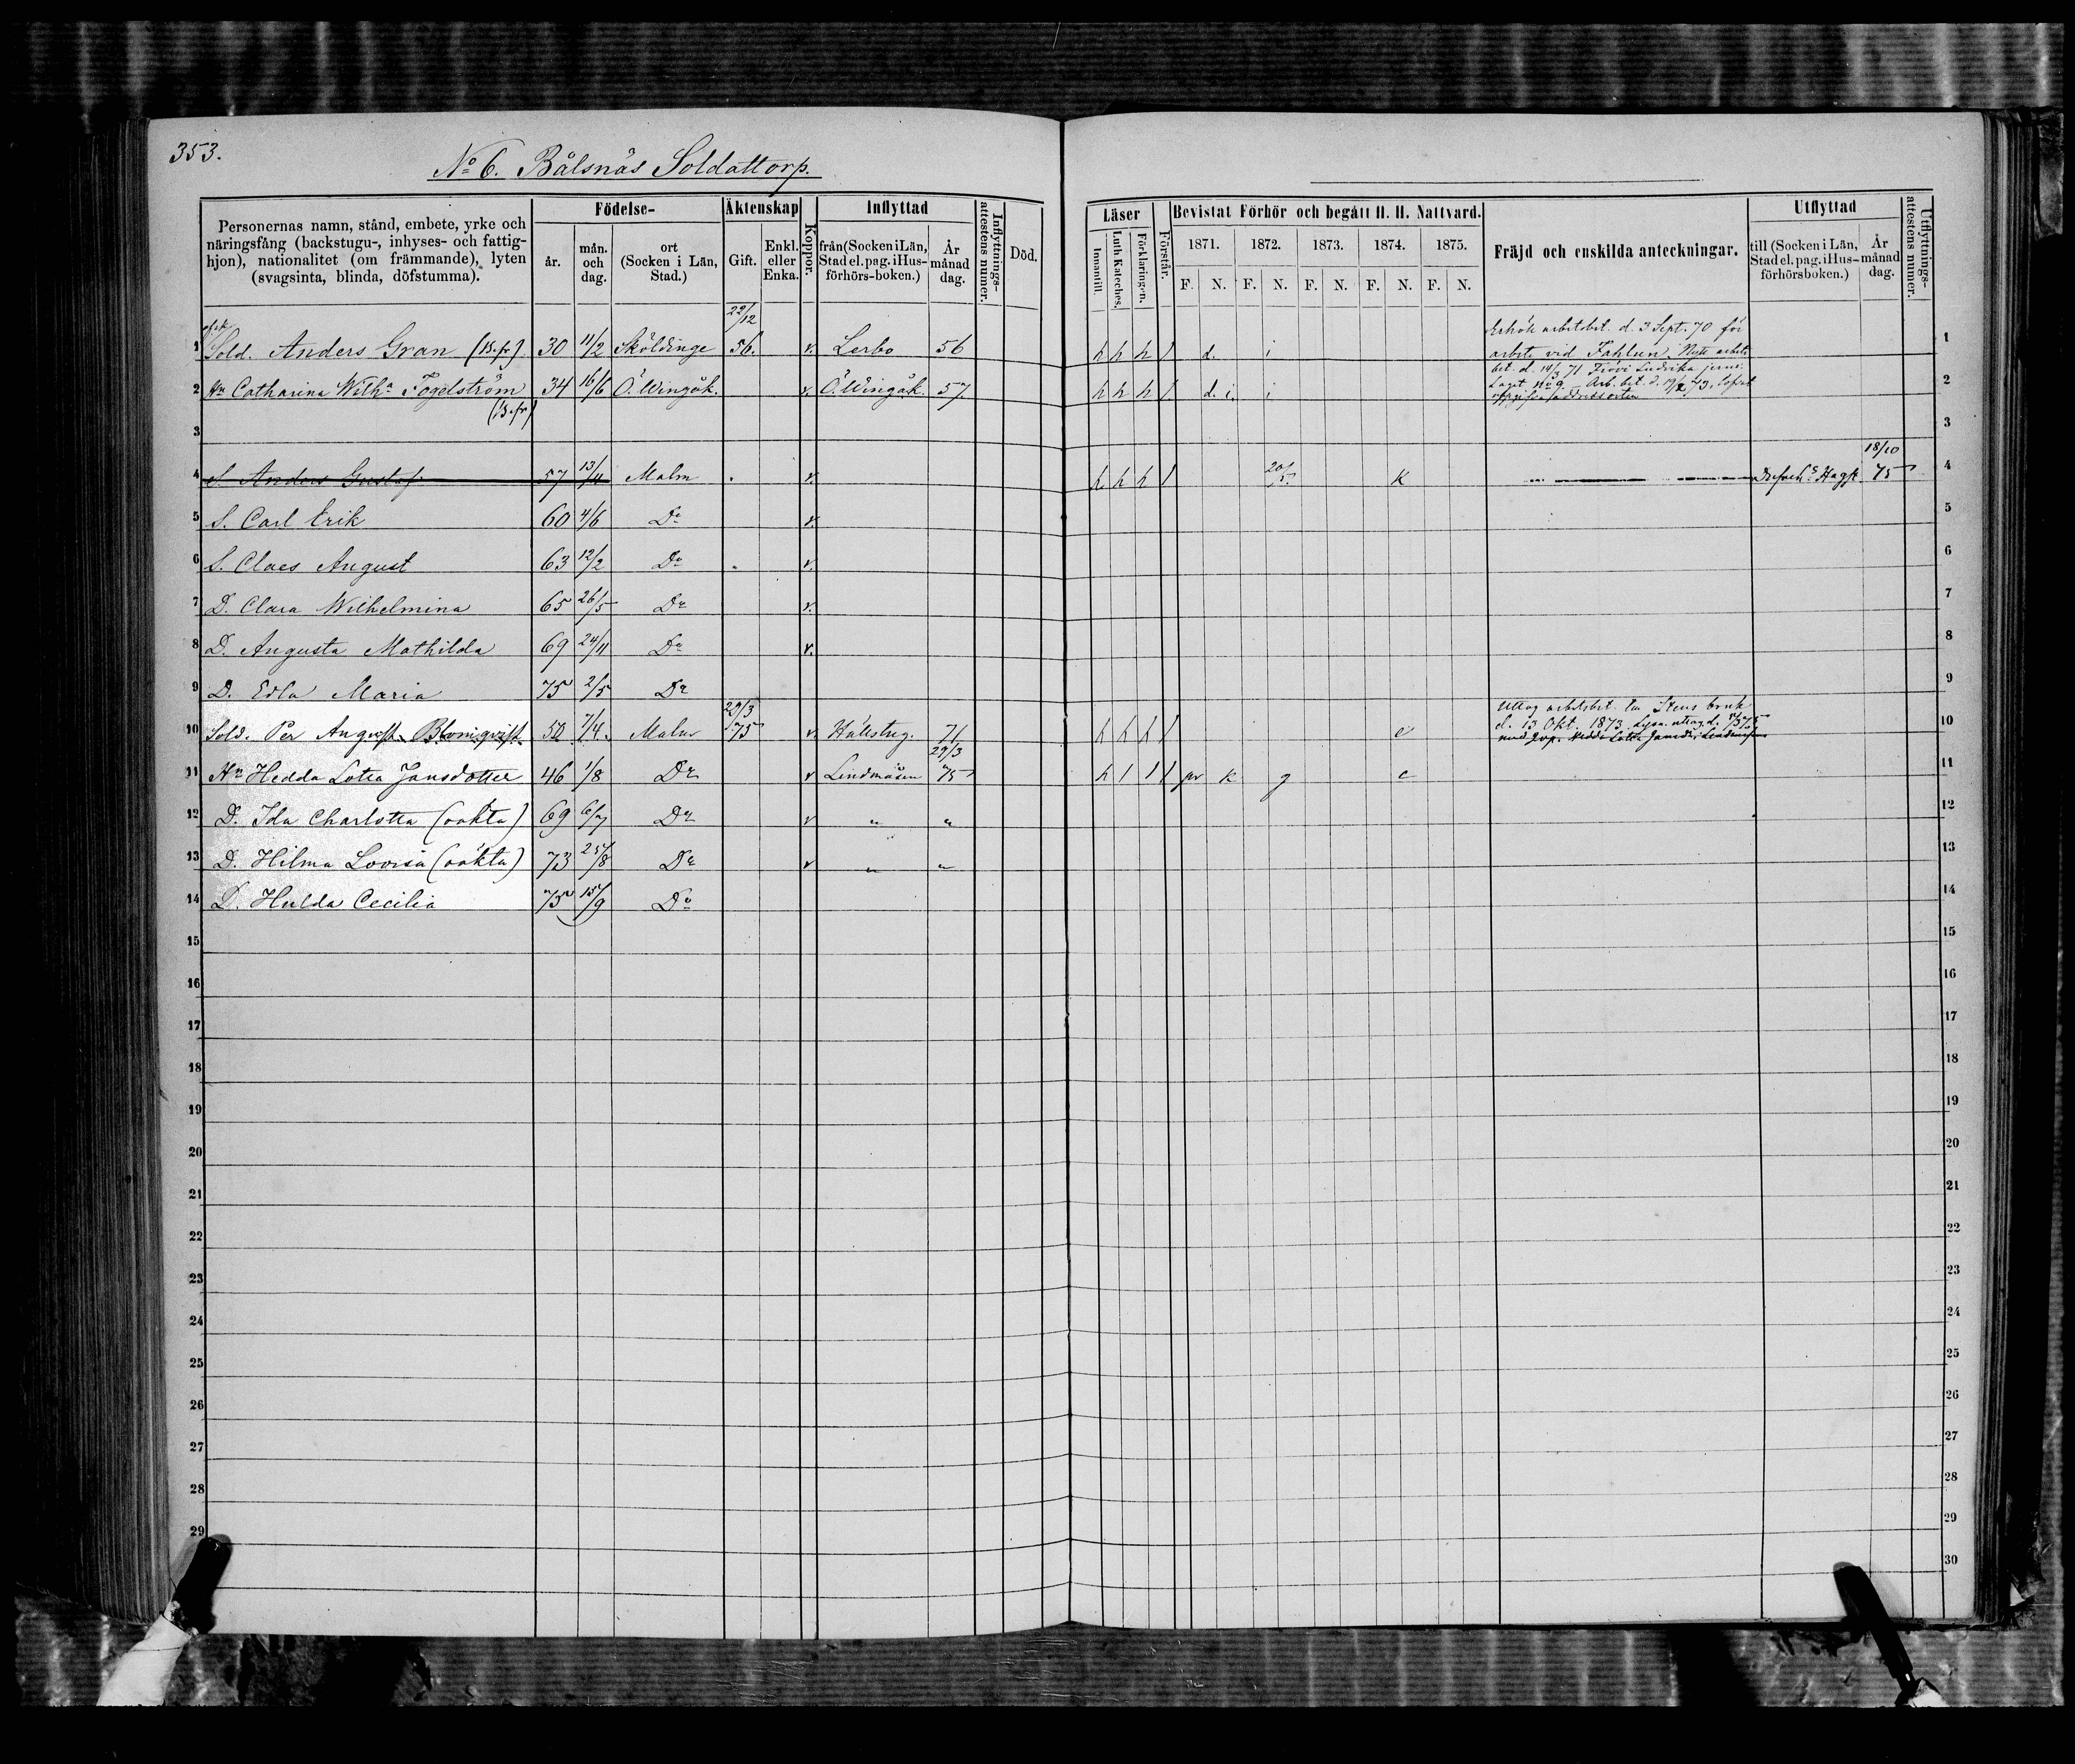 353.
No 6. Bålsnäs Soldattorp.
Personernas namn, stånd, embete, yrke och näringsfång (backstugu-, inhyses- och fattighjon), nationalitet (om främmande), lyten (svagsinta, blinda, döfstumma).
Födelse-
år.
mån. och dag.
ort (Socken i Län, Stad.)
Äktenskap
Gift.
Enkl. eller Enka.
Koppor.
Inflyttad
från (Socken i Län, Stad el. pag. i Husförhörs-boken.)
År månad dag.
Inflyttnings-attestens nummer.
Död.
Läser
Innantill.
Luth. Kateches.
Förklaringen.
Förstår.
Bevistat Förhör och begått H. H. Nattvard.
1871. 1872. 1873. 1874. 1875.
F. N. F. N. F. N. F. N. F. N.
Fräjd och enskilda anteckningar.
Utflyttad
till (Socken i Län, Stad el. pag. i Husförhörsboken.)
År månad dag.
Utflyttnings-attestens nummer.
22/12
1 Sold. Anders Gran (B.fr) 30 11/2 Sköldinge 56. v. Lerbo 56 h h h / d. i
Erhöll arbetsbet. d. 3 Sept. 70 för
arbete vid Fahlun. Nytt arbets
bet. d. 14/3 71 Frövi Ludvika jernv.
2 Hu Catharina Wilha Fogelström 34 16/6 Ö. Wingåk. v. Ö. Wingåk. 57. h h h / d. i. i
(B.fr)
3
18/10
4 S. Anders Gustaf 57 13/4 Malm v. h h h / 20/5 K 75
5 S. Carl Erik 60 4/6 Do v.
6 S. Claes August 63 12/2 Do v.
7 D. Clara Wilhelmina 65 26/5 Do v.
8 D. Augusta Mathilda 69 24/11 Do v.
9 D. Edla Maria 75 2/5 Do
29/3
Uttog arbetsbet. till Stens bruk
10 Sold. Per August Blomqvist 50 7/4. Malm 75 v. Hällstug. 71 h h h / c
d. 13 Okt. 1873.
29/3
11 Hu Hedda Lotta Jansdotter 46 1/8 Do v Lindmåsen 75 h / / / pr k g c
12 D. Ida Charlotta (oäkta) 69 6/7 Do v " "
13 D. Hilma Lovisa (oäkta) 73 25/8 Do v " "
14 D. Hulda Cecilia 75 15/9 Do
15
16
17
18
19
20
21
22
23
24
25
26
27
28
29
30